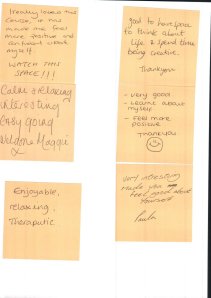 I really loved this
course, it has
made me feel
more positive and
confident about
myself.
WATCH THIS
SPACE!!!
Calm & relaxing
interesting
easy going
Welldone Maggie
Enjoyable,
relaxing,
Theraputic.
good to have space
to think about
life & spend time
being creative.
Thankyou
- very good
- Learnt about
myself
- Feel more
positive
Thankyou
Very interesting
made you
feel good about
yourself
Paula